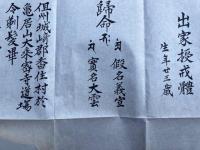 出家授戒牒
生年廿三歳
假名義宣
歸命
實名大雲
但州城崎郡香住村於
亀居山大乘寺道場
令剃髪畢